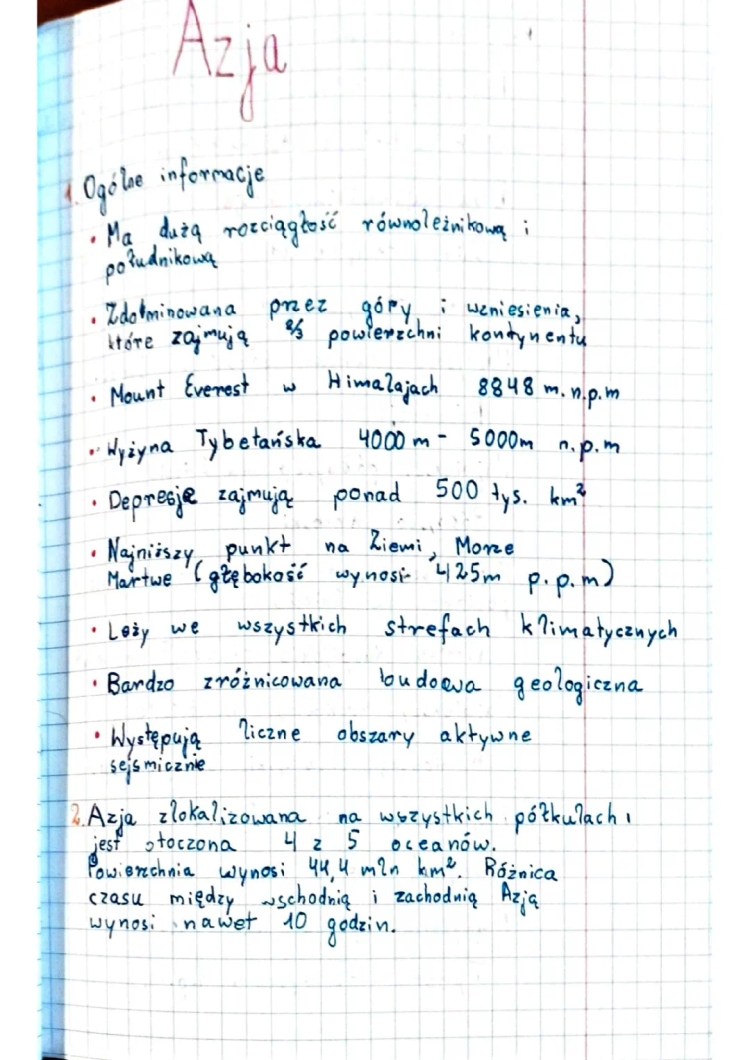 Azja
1. Ogólne informacje
• Ma dużą rozciągłość równoleżnikową i
południkową
• Zdominowana przez góry i wzniesienia,
które zajmują 2/3 powierzchni kontynentu
• Mount Everest w Himalajach 8848 m.n.p.m
• Wyżyna Tybetańska 4000 m - 5000m n.p.m
• Depresje zajmują ponad 500 tys. km²
• Najniższy punkt na Ziemi, Morze
Martwe (głębokość wynosi 425m p.p.m)
• Leży we wszystkich strefach klimatycznych
• Bardzo zróżnicowana budowa geologiczna
• Występują liczne obszary aktywne
sejsmicznie
2. Azja zlokalizowana na wszystkich półkulach i
jest otoczona 4 z 5 oceanów.
Powierzchnia wynosi 44,4 mln km². Różnica
czasu między wschodnią i zachodnią Azją
wynosi nawet 10 godzin.